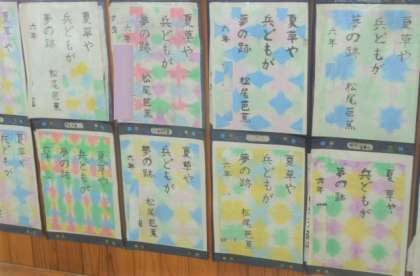 夏草や
兵どもが
夢の跡
松尾芭蕉
六年
夏草や
兵どもが
夢の跡
松尾芭蕉
六年
夏草や
兵どもが
夢の跡
松尾芭蕉
六年
夏草や
兵どもが
夢の跡
松尾芭蕉
六年
夏草や
兵どもが
夢の跡
松尾芭蕉
六年
夏草や
兵どもが
夢の跡
松尾芭蕉
六年
夏草や
兵どもが
夢の跡
松尾芭蕉
六年
夏草や
兵どもが
夢の跡
夏草や
兵どもが